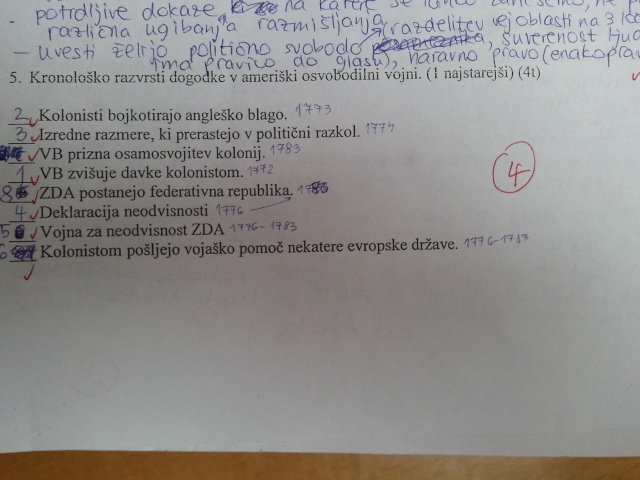 potrdljive dokaze na katere se lahko
- različna ugibanja razmišljanja (razdelitev vej oblasti na 3
- uvesti želijo politično svobodo, suverenost ljud
ima pravico do glasu), naravno pravo (enakoprav
5. Kronološko razvrsti dogodke v ameriški osvobodilni vojni. (1 najstarejši) (4t)
2 Kolonisti bojkotirajo angleško blago. 1773
3 Izredne razmere, ki prerastejo v politični razkol. 1774
VB prizna osamosvojitev kolonij. 1783
1 VB zvišuje davke kolonistom. 1772
8 ZDA postanejo federativna republika.
4 Deklaracija neodvisnosti 1776
5 Vojna za neodvisnost ZDA 1776-1783
6 Kolonistom pošljejo vojaško pomoč nekatere evropske države. 1776-1783
4